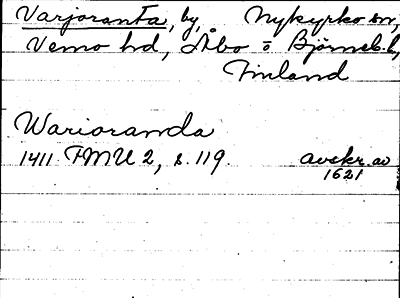 Varjoranta, by, Nykyrko sn,
Vemo hd, Åbo o Björneb. l,
Finland
Warioranda
1411 FMU 2, s. 119. avskr. av
1621